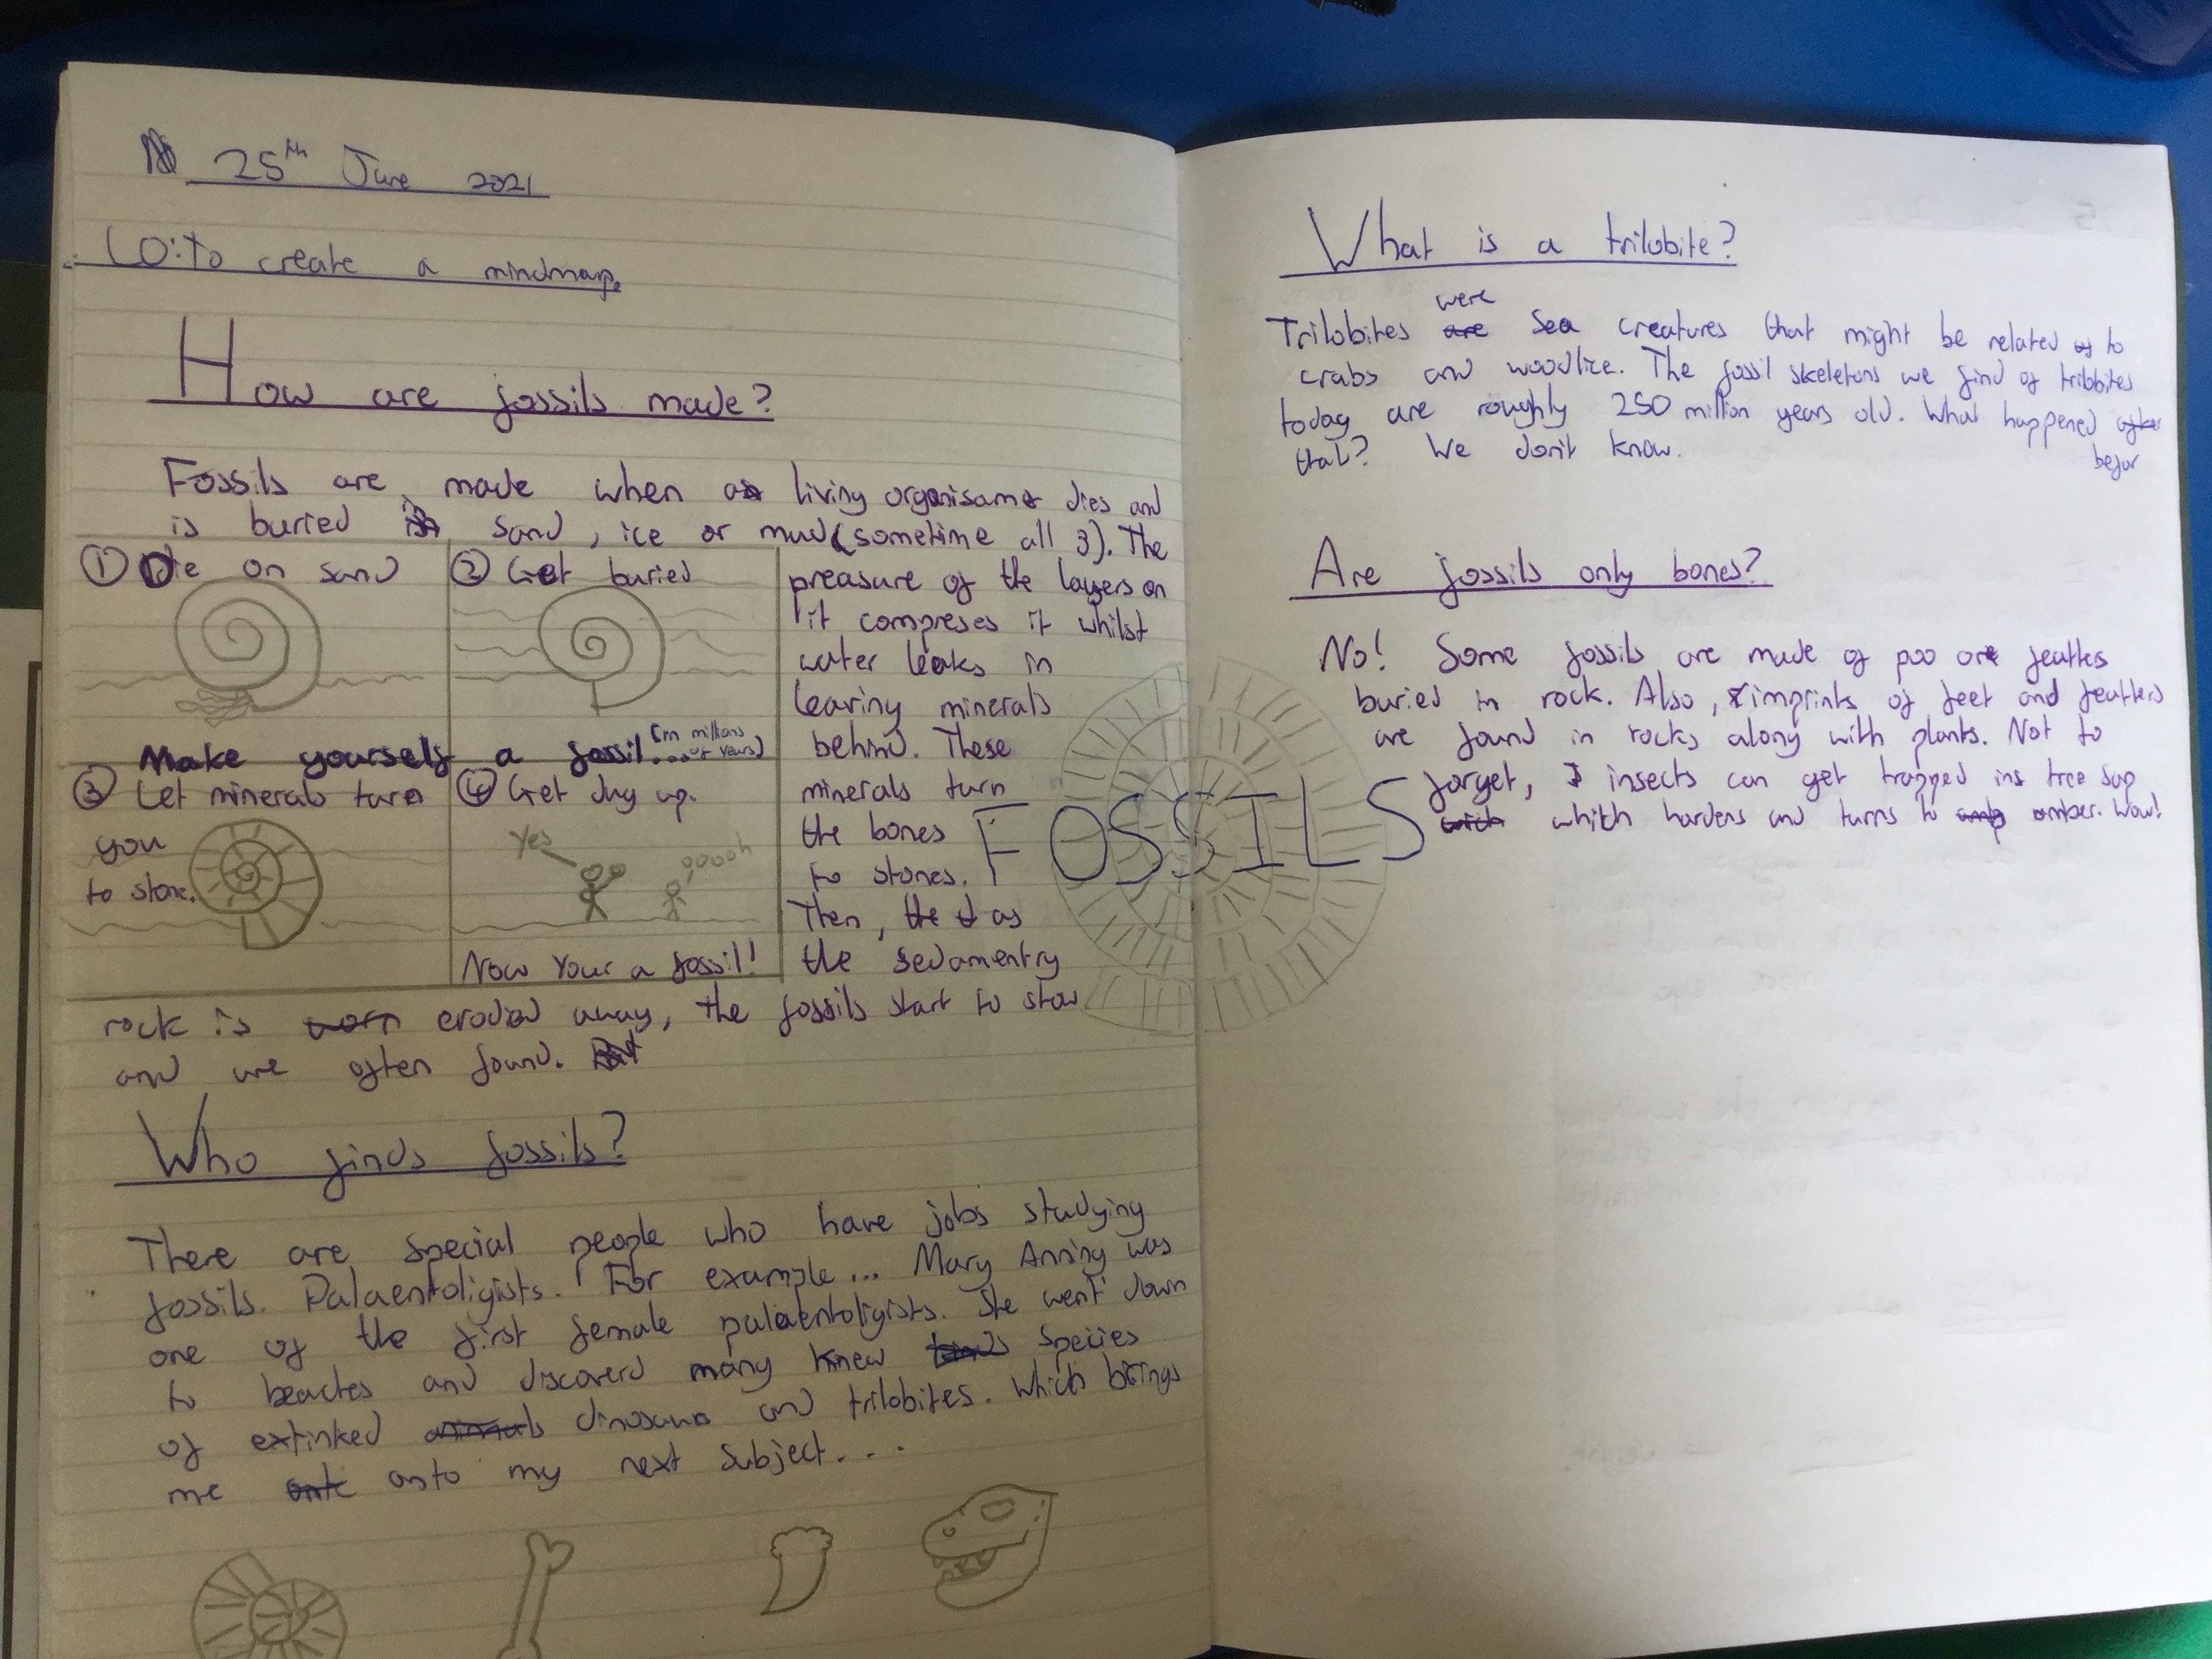 25th June 2021
LO: To create a mindmap.
How are fossils made?
Fossils are made when a living organisam dies and
is buried in sand, ice or mud (sometime all 3). The
preasure of the layers on
it compreses it whilst
water leaks in
leaving minerals
behind. These
minerals turn
the bones
to stones.
Then, the as
the sedamentry
rock is worn eroded away, the fossils start to show
and are often found. But
① Die on sand
② Get buried
Make yourself a fossil... (in millions
of years)
③ Let minerals turn
you
to stone.
④ Get dug up.
Yes
ooooh
Now your a fossil!
Who finds fossils?
There are special people who have jobs studying
fossils. Palaentoligists. For example... Mary Anning was
one of the first female palaentoligists. She went down
to beaches and discoverd many knew species
of extinked animals dinosaurs and trilobites. Which brings
me onto my next subject...
FOSSILS
What is a trilobite?
were
Trilobites are sea creatures that might be related of to
crabs and woodlice. The fossil skeletons we find of trilobites
today are roughly 250 million years old. What happened after
befor
that? We don't know.
Are fossils only bones?
No! Some fossils are made of poo or feathers
buried in rock. Also, imprints of feet and feathers
are found in rocks along with plants. Not to
forget, insects can get trapped in tree sap
wich which hardens and turns to amber. Wow!